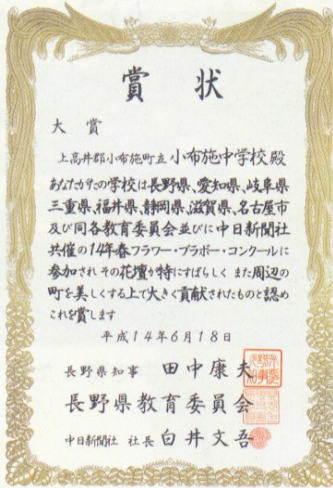 賞状
大賞
上高井郡小布施町立 小布施中学校 殿
あなたがたの学校は長野県、愛知県、岐阜県
三重県、福井県、静岡県、滋賀県、名古屋市
及び同各教育委員会並びに中日新聞社
共催の14年春フラワー・ブラボー・コンクールに
参加され その花壇が特にすばらしく また周辺の
町を美しくする上で大きく貢献されたものと認め
これを賞します
平成14年6月18日
長野県知事 田中康夫
長野県教育委員会
中日新聞社 社長 白井文吾